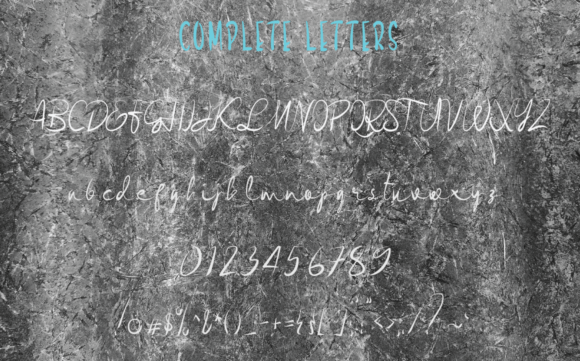 COMPLETE LETTERS
ABCDEFGHIJKLMNOPQRSTUVWXYZ
abcdefghijklmnopqrstuvwxyz
0123456789